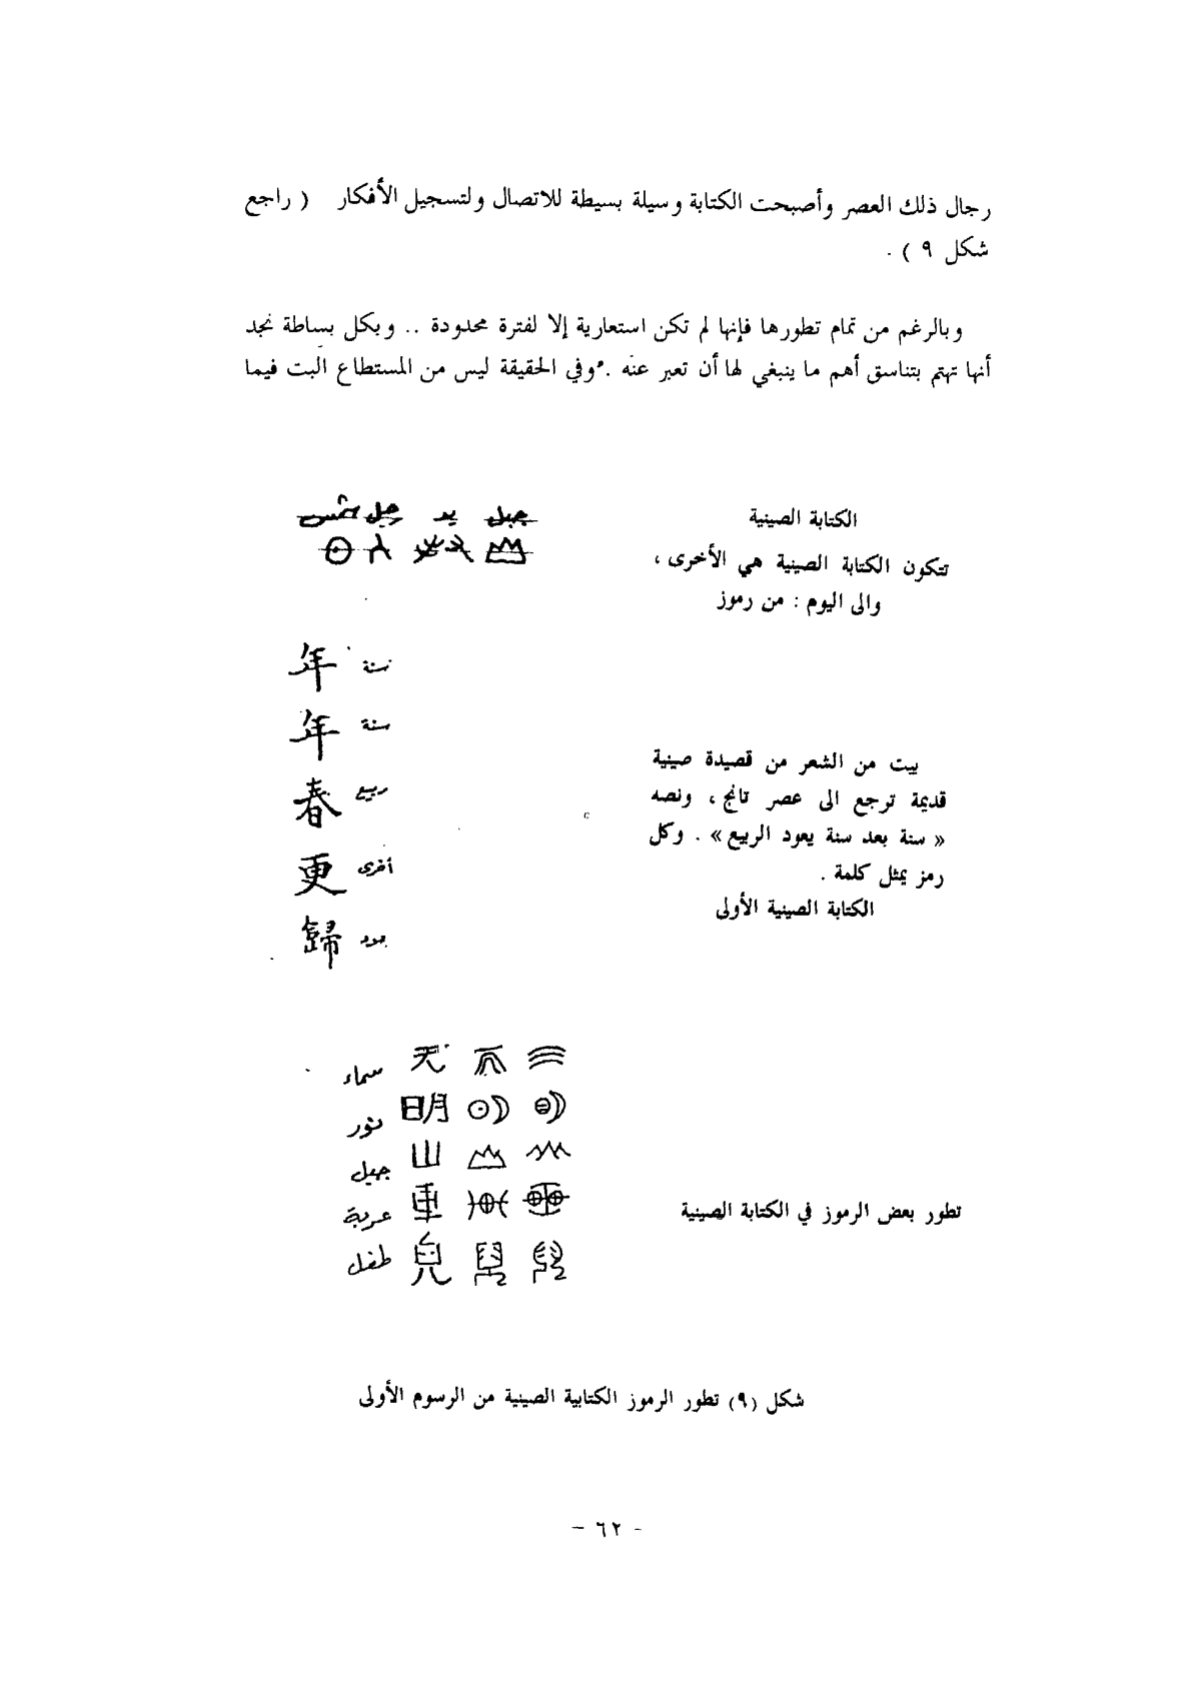 رجال ذلك العصر وأصبحت الكتابة وسيلة بسيطة للاتصال ولتسجيل الأفكار ( راجع
شكل ٩ ) .
وبالرغم من تمام تطورها فإنها لم تكن استعارية إلا لفترة محدودة .. وبكل بساطة نجد
أنها تهتم بتناسق أهم ما ينبغي لها أن تعبر عنه . وفي الحقيقة ليس من المستطاع البت فيما
الكتابة الصينية
تتكون الكتابة الصينية هي الأخرى ،
والى اليوم : من رموز
جبل يد رجل شمس
年 سنة
年 سنة
春 ربيع
更 أخرى
歸 يعود
بيت من الشعر من قصيدة صينية
قديمة ترجع الى عصر تانج ، ونصه
« سنة بعد سنة يعود الربيع » . وكل
رمز يمثل كلمة .
الكتابة الصينية الأولى
سماء 天
نور 明
جبل 山
عربة 車
طفل 兒
تطور بعض الرموز في الكتابة الصينية
شكل (٩) تطور الرموز الكتابية الصينية من الرسوم الأولى
- ٦٢ -